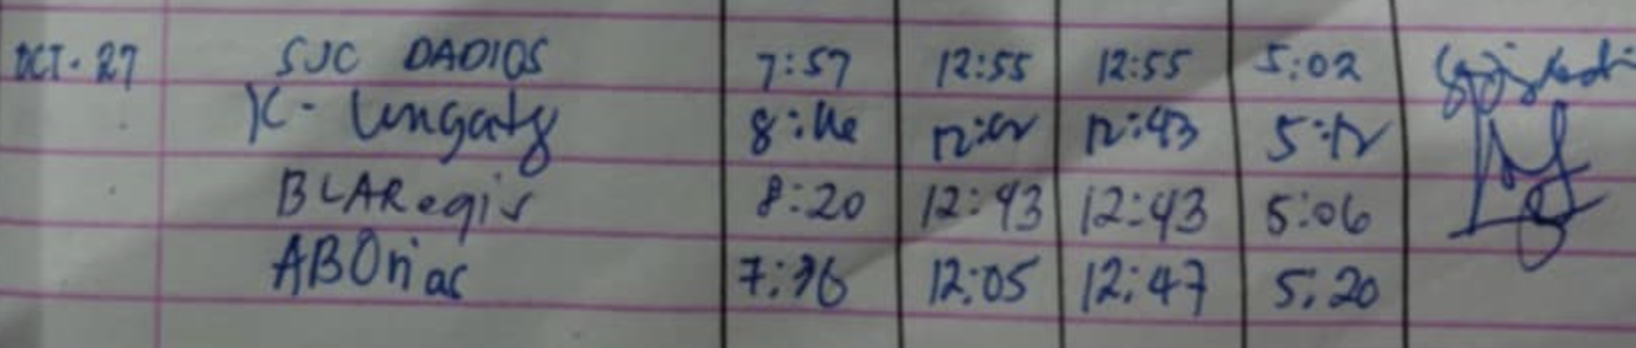 OCT. 27 SJC DADIOS 7:57 12:55 12:55 5:02
K- Lungaty 8:16 12:43 5:12
BLARegis 8:20 12:43 12:43 5:06
ABOniac 7:36 12:05 12:47 5:20